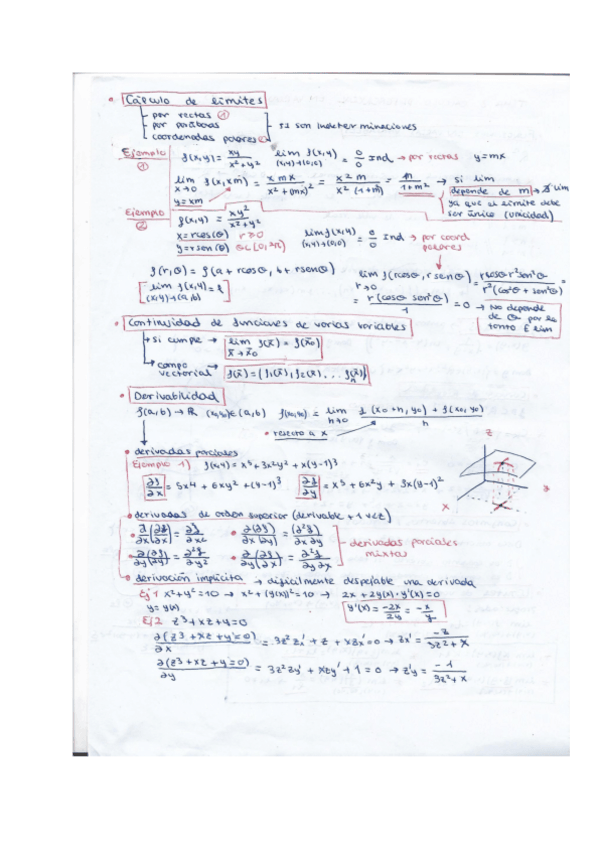 Cálculo de límites
por rectas ①
por parábolas
coordenadas polares ②
si son indeterminaciones
Ejemplo ①
f(x,y) = xy / x²+y²   lim f(x,y) (x,y)→(0,0) = 0/0 Ind → por rectas y=mx
lim f(x,xm) x→0 y=xm = x m x / x²+(mx)² = x²m / x²(1+m) = m / 1+m² → si lim
depende de m → ∄ lim
ya que el límite debe
ser único (unicidad)
Ejemplo ②
f(x,y) = xy² / x²+y²
x=rcos(θ) r≥0
y=rsen(θ) θ∈[0,2π]
lim f(x,y) (x,y)→(0,0) = 0/0 Ind → por coord polares
f(r,θ) = f(a+rcosθ, b+rsenθ)
lim f(x,y)=l (x,y)→(a,b)
lim f(rcosθ, rsenθ) r→0 = rcosθ r²sen²θ / r²(cos²θ+sen²θ) =
= r(cosθ sen²θ) / 1 = 0 → No depende
de θ por lo
tanto ∃ lim
Continuidad de funciones de varias variables
si cumple → lim f(x̄) = f(x̄₀) x̄→x̄₀
campo vectorial → f(x̄)=(f₁(x̄), f₂(x̄), ... fₙ(x̄))
Derivabilidad
f(a,b) → ℝ (x₀,y₀)∈(a,b) f(x₀,y₀) = lim h→0 f(x₀+h, y₀) + f(x₀,y₀) / h
respecto a x
derivadas parciales
Ejemplo 1) f(x,y) = x⁵+3x²y²+x(y-1)³
∂f/∂x = 5x⁴ + 6xy² + (y-1)³   ∂f/∂y = x⁵ + 6x²y + 3x(y-1)²
z
x
derivadas de orden superior (derivable
∂/∂x (∂f/∂x) =   ∂/∂x (∂f/∂y) = ∂²f/∂x∂y
∂/∂y (∂f/∂y) = ∂²f/∂y²   ∂/∂y (∂f/∂x) = ∂²f/∂y∂x
derivadas parciales
mixtas
derivación implícita → difícilmente despejable una derivada
Ej 1 x²+y²=10 → x²+(y(x))²=10 → 2x+2y(x)·y'(x)=0
y=y(x)   y'(x) = -2x/2y = -x/y
Ej 2 z³+xz+y=0
∂(z³+xz+y=0)/∂x = 3z²zx' + z + xzx' = 0 → zx' = -z / 3z²+x
∂(z³+xz+y=0)/∂y = 3z²zy' + xzy' + 1 = 0 → z'y = -1 / 3z²+x